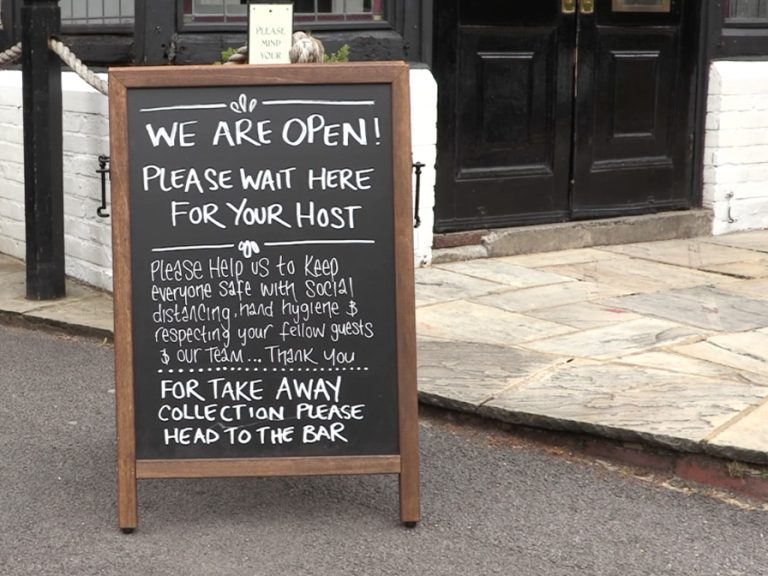 PLEASE
MIND
YOUR
WE ARE OPEN!
PLEASE WAIT HERE
FOR YOUR HOST
PLEASE HELP US TO KEEP
everyone Safe with Social
distancing, hand hygiene &
respecting your fellow guests
& OUR TEAM... THANK YOU
FOR TAKE AWAY
COLLECTION PLEASE
HEAD TO THE BAR